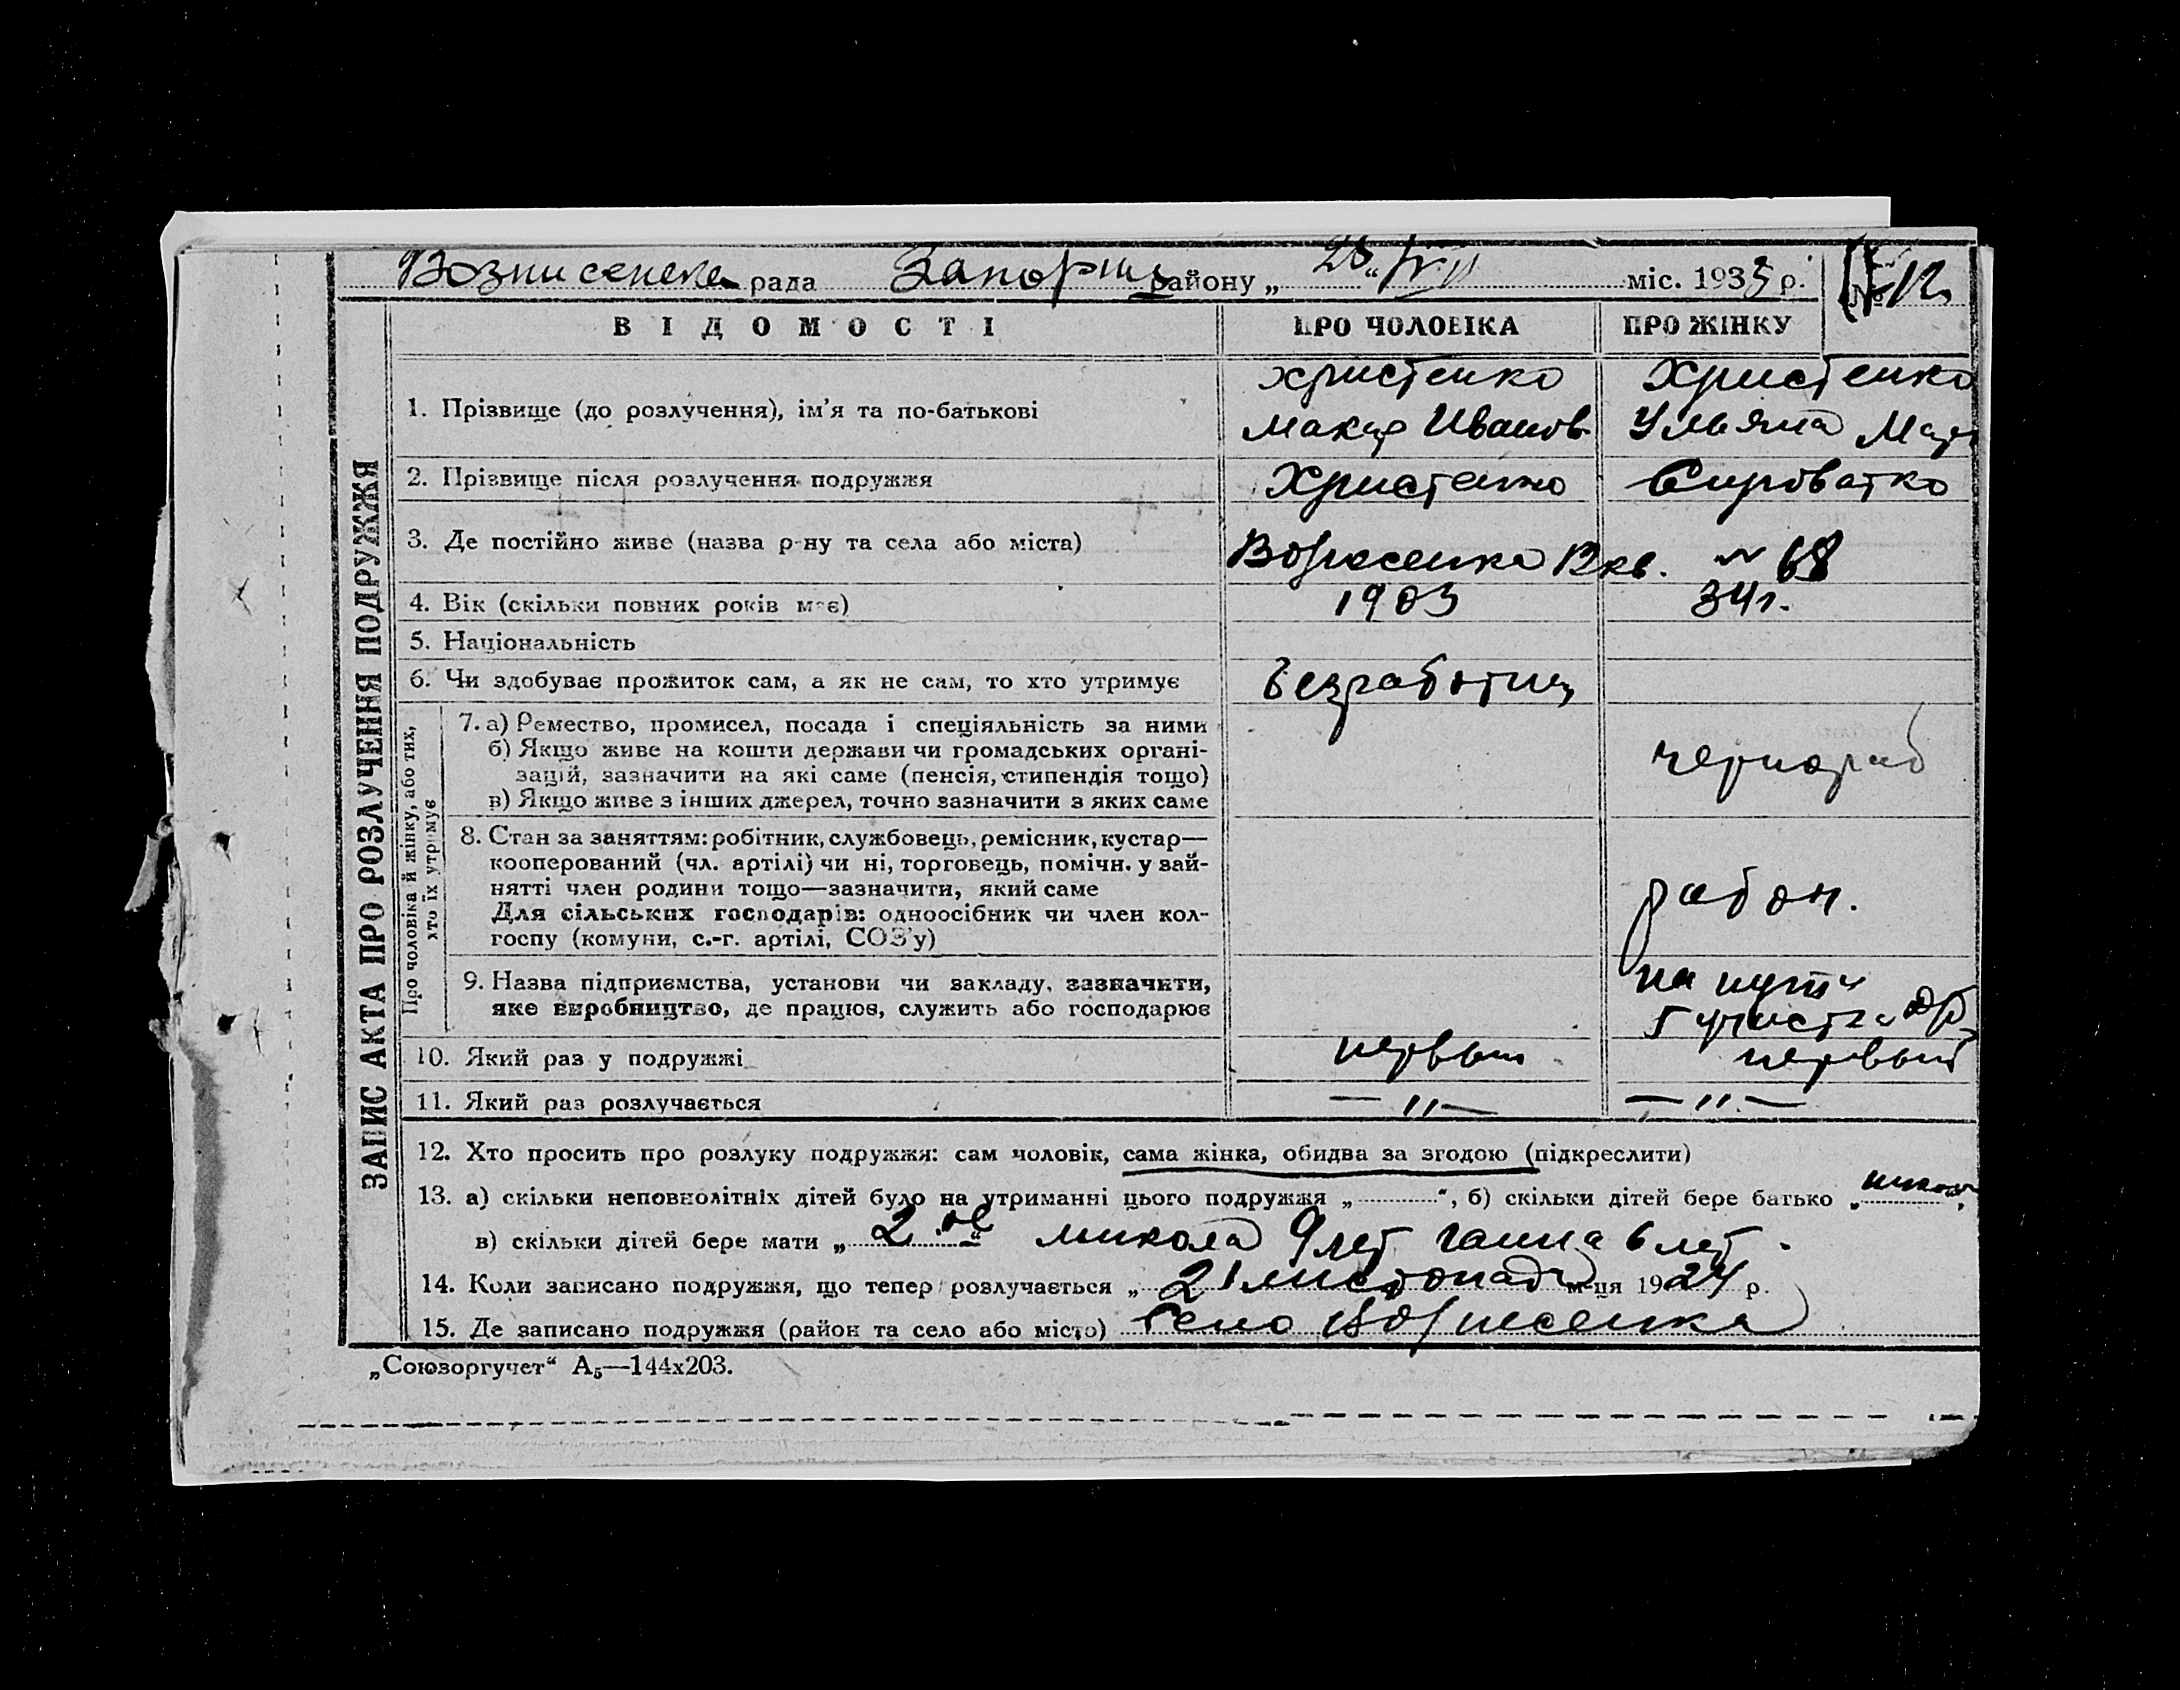 Вознисенска рада Запориж району „ 28 “ міс. 1933 р. № 12
ЗАПИС АКТА ПРО РОЗЛУЧЕННЯ ПОДРУЖЖЯ
ВІДОМОСТІ ПРО ЧОЛОВІКА ПРО ЖІНКУ
1. Прізвище (до розлучення), ім’я та по-батькові
Христенко Макар Иванов.
Христенко Ульяна Мар
2. Прізвище після розлучення подружжя Христенко Сироватко
3. Де постійно живе (назва р-ну та села або міста) Вознесенка 12 кв. № 68
4. Вік (скільки повних років має) 1903 34 г.
5. Національність
6. Чи здобуває прожиток сам, а як не сам, то хто утримує безработн
Про чоловіка й жінку, або тих,
хто їх утримує
7. а) Ремество, промисел, посада і спеціяльність за ними
б) Якщо живе на кошти держави чи громадських органі-
зацій, зазначити на які саме (пенсія, стипендія тощо)
в) Якщо живе з інших джерел, точно зазначити з яких саме
чернораб
8. Стан за заняттям: робітник, службовець, ремісник, кустар—
кооперований (чл. артілі) чи ні, торговець, помічн. у зай-
нятті член родини тощо—зазначити, який саме
Для сільських господарів: одноосібник чи член кол-
госпу (комуни, с.-г. артілі, СОЗ’у)
рабоч.
9. Назва підприємства, установи чи закладу, зазначити,
яке виробництво, де працює, служить або господарює
на пути
10. Який раз у подружжі первый первый
11. Який раз розлучається —〃 — — 〃 —
12. Хто просить про розлуку подружжя: сам чоловік, сама жінка, обидва за згодою (підкреслити)
13. а) скільки неповнолітніх дітей було на утриманні цього подружжя „ “, б) скільки дітей бере батько „ “,
в) скільки дітей бере мати „ 2 ое “ микола 9 лет ганна 6 лет.
14. Коли записано подружжя, що тепер розлучається „ 21 листопада м-ця 1924 р.
15. Де записано подружжя (район та село або місто) село Вознесенка
„Союзоргучет“ А₅—144х203.